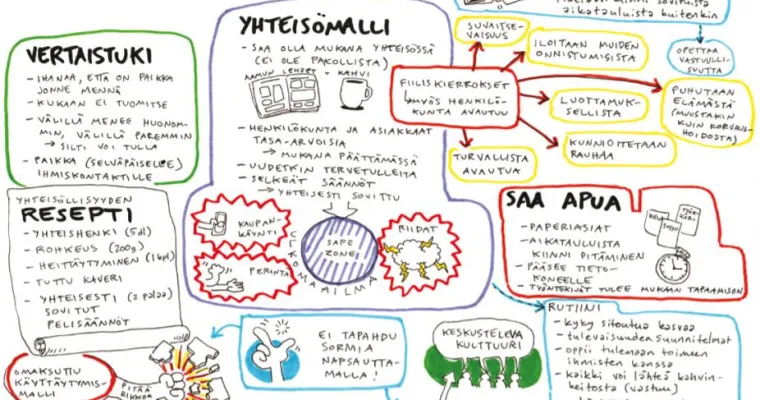 VERTAISTUKI
- IHANAA, ETTÄ ON PAIKKA
JONNE MENNÄ
- KUKAAN EI TUOMITSE
- VÄLILLÄ MENEE HUONOM-
MIN, VÄLILLÄ PAREMMIN
→ SILTI VOI TULLA
- PAIKKA (SELVÄPÄISELLE)
IHMISKONTAKTILLE
YHTEISÖLLISYYDEN
RESEPTI
- YHTEISHENKI (5dl)
- ROHKEUS (200g)
- HEITTÄYTYMINEN (1kpl)
- TUTTU KAVERI
- YHTEISESTI
SOVITUT
PELISÄÄNNÖT
OMAKSUTTU
KÄYTTÄYTYMIS-
MALLI
PITÄÄ
RIKKOA
YHTEISÖMALLI
- SAA OLLA MUKANA YHTEISÖSSÄ
(EI OLE PAKOLLISTA)
AAMUN LEHDET + KAHVI
- HENKILÖKUNTA JA ASIAKKAAT
TASA-ARVOISIA
→ MUKANA PÄÄTTÄMÄSSÄ
- UUDETKIN TERVETULLEITA
- SELKEÄT SÄÄNNÖT
→ YHTEISESTI SOVITTU
KAUPAN-
KÄYNTI
PERINTÄ
SAFE
ZONE!
RIIDAT
ULKOMAAILMA
EI TAPAHDU
SORMIA
NAPSAUTTA-
MALLA!
KESKUSTELEVA
KULTTUURI
aikatauluista kuitenkin
OPETTAA
VASTUULLI-
SUUTTA
SUVAITSE-
VAISUUS
ILOITAAN MUIDEN
ONNISTUMISISTA
FIILISKIERROKSET
↳ MYÖS HENKILÖ-
KUNTA AVAUTUU
LUOTTAMUK-
SELLISTA
PUHUTAAN
ELÄMÄSTÄ
(MUUSTAKIN
KUIN KORVAUS-
HOIDOSTA)
KUNNIOITETAAN
RAUHAA
TURVALLISTA
AVAUTUA
SAA APUA
- PAPERIASIAT
- AIKATAULUISTA
KIINNI PITÄMINEN
- PÄÄSEE TIETO-
KONEELLE
- TYÖNTEKIJÄT TULEE MUKAAN TAPAAMISIIN
KELA
RUTIINI
- kyky sitoutua kasvaa
- tulevaisuuden suunnitelmat
- oppii tulemaan toimeen
ihmisten kanssa
- kaikki voi lähteä kahvin-
keitosta (vastuu)